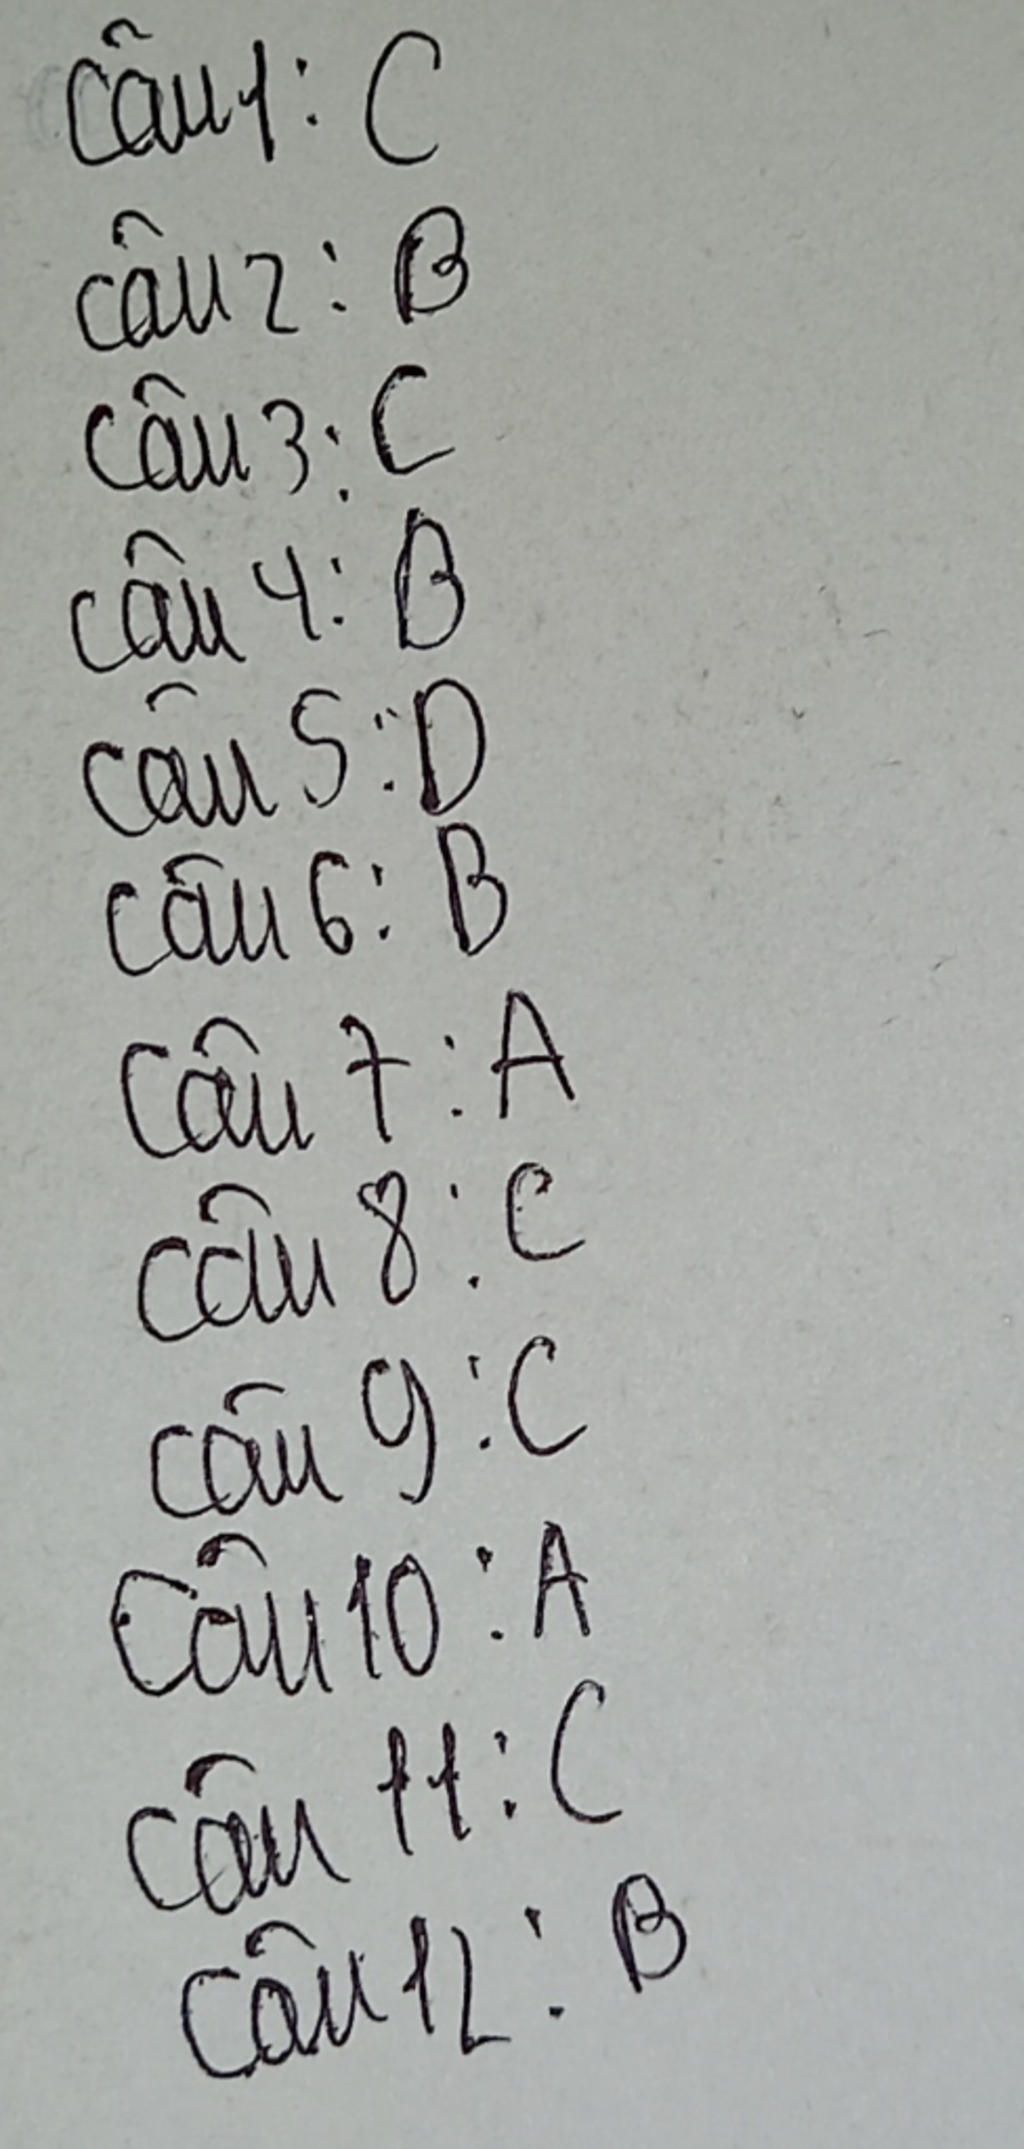 Câu 1: C
câu 2: B
câu 3: C
câu 4: B
câu 5: D
câu 6: B
Câu 7: A
câu 8: C
câu 9: C
Câu 10: A
câu 11: C
câu 12: B